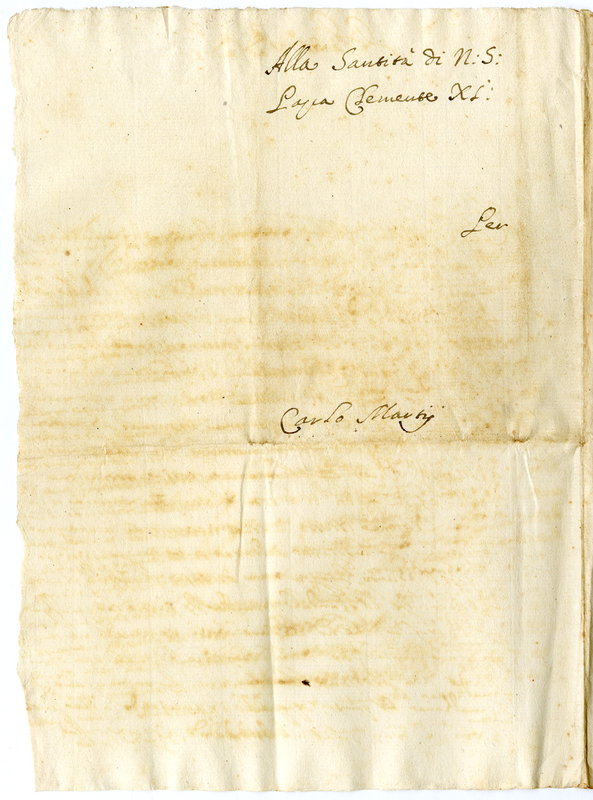 Alla Santità di N: S:
Papa Clemente XI.
Per
Carlo Martij